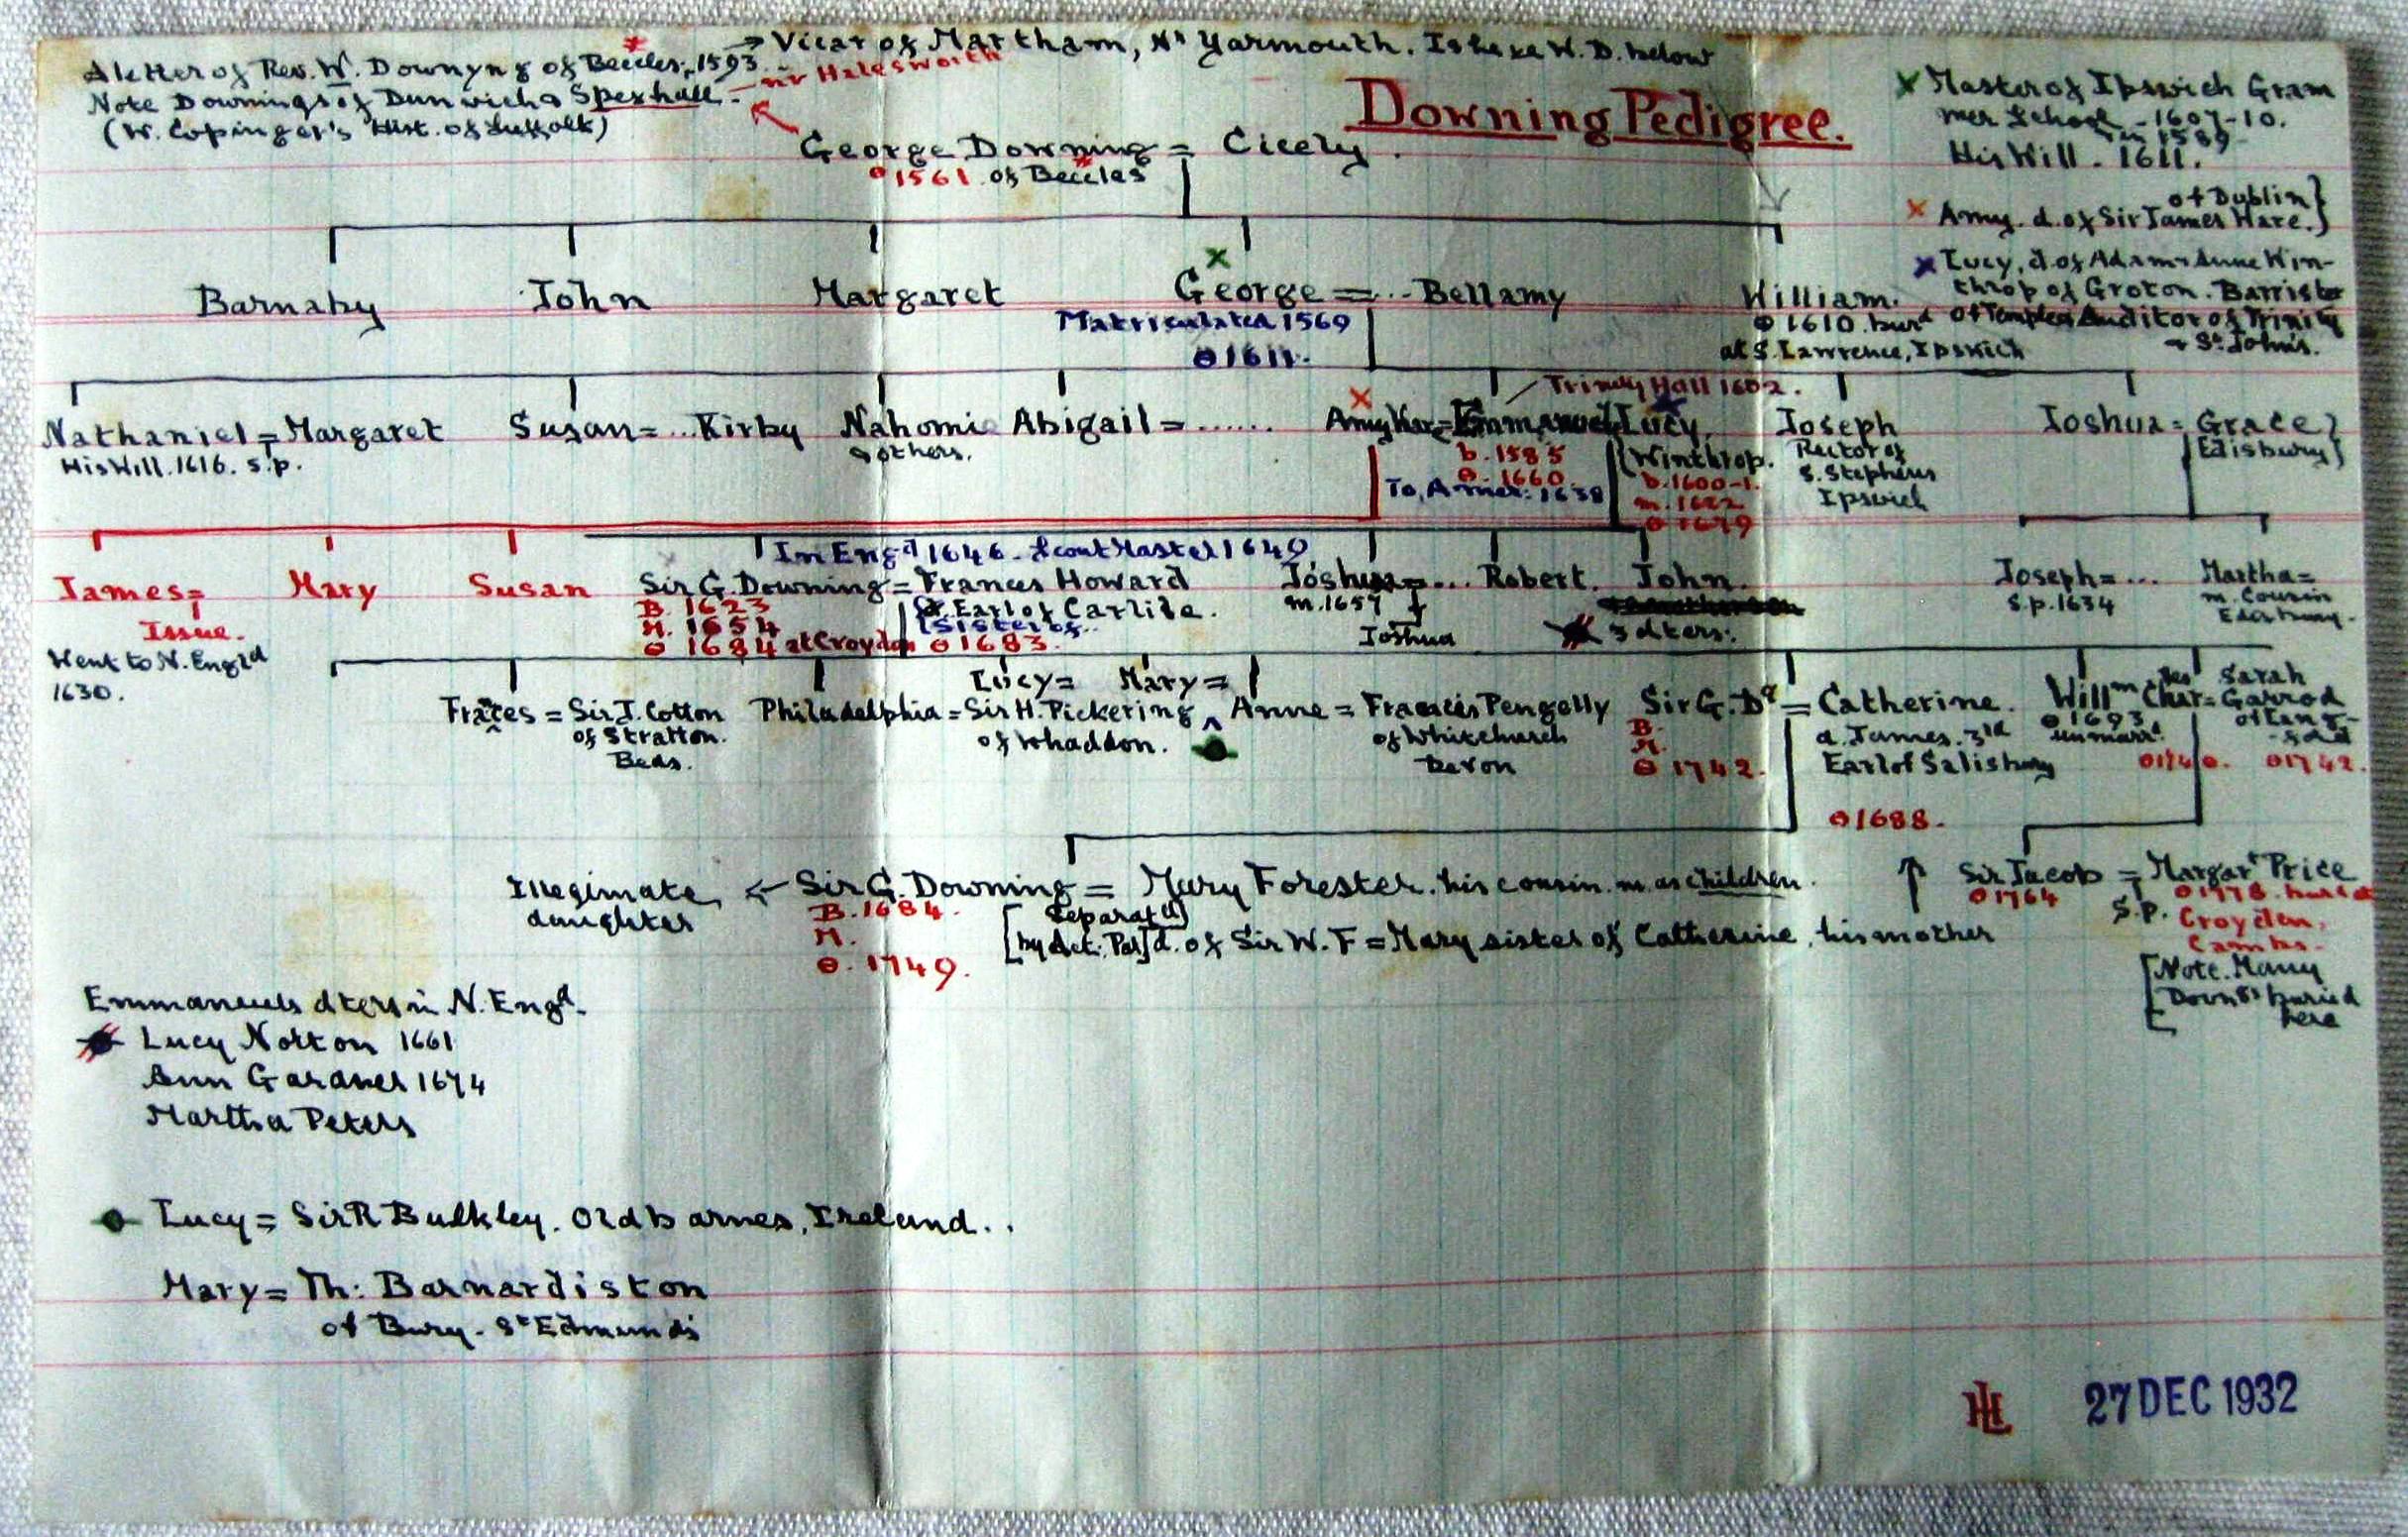 A letter of Rev. W. Downyng of Beccles, 1593 → Vicar of Martham, Nr Yarmouth. Is he ye W. D. below
Note Downings of Dunwich & Spexhall - nr Halesworth
(W. Copinger's Hist. of Suffolk)
Downing Pedigree.
x Master of Ipswich Gram
mer School - 1607-10.
in 1589
His Will. 1611.
George Downing = Cicely.
o 1561 of Beccles
of Dublin}
x Amy. d. of Sir James Ware.}
x Lucy, d of Adam & Anne Win-
throp of Groton. Barrister
of Temple & Auditor of Trinity
& St. John's.
Barnaby John Margaret George = ... Bellamy William.
Matriculated 1569
o 1611.
o 1610. burd
at S. Lawrence, Ipswich
Trinity Hall 1602.
Nathaniel = Margaret Susan = ... Kirby Nahomi Abigail = ...... Amy War = Emmanuel Lucy Joseph Joshua = Grace}
His Will. 1616. s.p.
& others.
b. 1585
o. 1660.
To Amer: 1638
(Winthrop.
b. 1600-1.
m. 1622
o 1679
Rector of
S. Stephens
Ipswich
Edisbury}
In Engd 1646. Scout Master 1649
James = Mary Susan Sir G. Downing = Frances Howard Joshua = ... Robert. John. Joseph = ... Martha =
Issue.
Went to N. Engld
1630.
B. 1623
M. 1654
o 1684 at Croydon
d. Earl of Carlile.
(Sister of..
o 1683.
m. 1657
Joshua
3 dters.
s.p. 1634
m. Cousin
Lucy = Mary =
Frances = Sir J. Cotton Philadelphia = Sir H. Pickering ^ Anne = Francis Pengelly Sir G. Dg = Catherine. Willm Char = Sarah
Garrod
of Stratton.
Beds.
of Whaddon.
of Whitchurch
Devon
B.
M.
o 1742.
d. James. 3rd
Earl of Salisbury
o 1688.
o 1693
unmarrd.
o 1740. o 1742.
Illegimate
daughter
← Sir G. Downing = Mary Forester. his cousin. m. as children.
B. 1684.
M.
o. 1749.
[Separatd
by Act. Parl] d. of Sir W. F = Mary sister of Catherine, his mother
↑ Sir Jacob = Margart Price
o 1764
o 1778. buried at
S.P. Croyden,
Cambs.
[Note. Many
Downgs buried
here
Emmanuels dters in N. Engd.
Lucy Norton 1661
Ann Gardner 1674
Martha Peters
Lucy = Sir R Bulkley. Old barnes, Ireland..
Mary = Th: Barnardiston
of Bury. St Edmunds
HL 27 DEC 1932